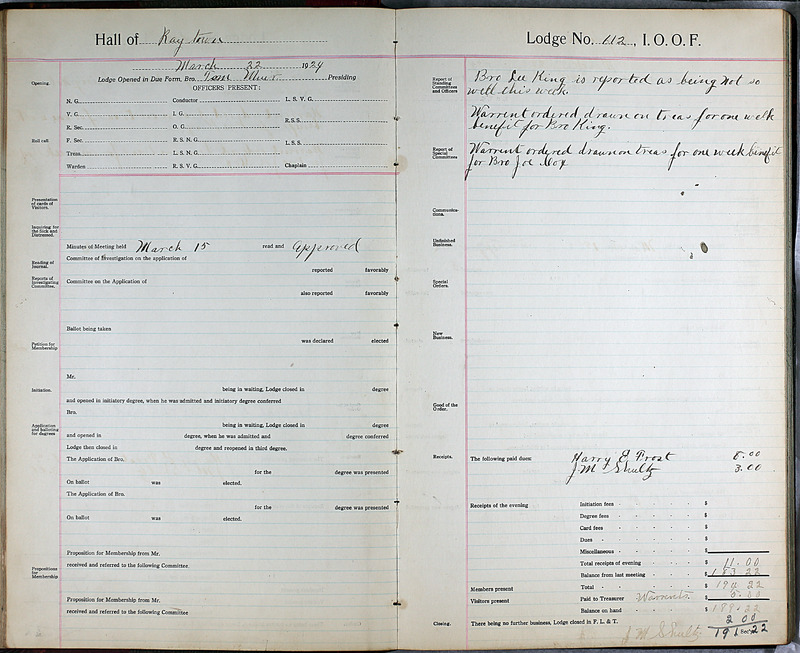 Hall of Raytown
March 22 1924
Lodge Opened in Due Form, Bro. Tom Muir Presiding
OFFICERS PRESENT:
Opening.
N. G. Conductor L. S. V. G.
V. G. I. G.
R. Sec. O. G. R.S.S.
Roll call
F. Sec. R. S. N. G.
Treas. L. S. N. G. L. S. S.
Warden R. S. V. G. Chaplain
Presentation of cards of Visitors.
Inquiring for the Sick and Distressed.
Minutes of Meeting held March 15 read and approved
Reading of Journal.
Committee of Investigation on the application of
reported favorably
Reports of Investigating Committee.
Committee on the Application of
also reported favorably
Ballot being taken
was declared elected
Petition for Membership
Mr.
Initiation.
being in waiting, Lodge closed in degree
and opened in initiatory degree, when he was admitted and initiatory degree conferred
Bro.
Application and balloting for degrees
being in waiting, Lodge closed in degree
and opened in degree, when he was admitted and degree conferred
Lodge then closed in degree and reopened in third degree.
The Application of Bro.
for the degree was presented
On ballot was elected.
The Application of Bro.
for the degree was presented
On ballot was elected.
Proposition for Membership from Mr.
received and referred to the following Committee.
Propositions for Membership
Proposition for Membership from Mr.
received and referred to the following Committee
Lodge No. 112, I. O. O. F.
Report of Standing Committees and Officers
Bro Lee King is reported as being not so
well this week.
Warrent ordered drawn on treas for one week
benefit for Bro King.
Report of Special Committees
Warrent ordered drawn on treas for one week benefit
for Bro Joe Cox
Communications.
Unfinished Business.
Special Orders.
New Business.
Good of the Order.
Receipts.
The following paid dues: Harry E Frost 8.00
J M Shultz 3.00
Receipts of the evening Initiation fees $
Degree fees $
Card fees $
Dues $
Miscellaneous $
Total receipts of evening $ 11.00
Balance from last meeting $ 183 22
Members present Total $ 194 22
Visitors present Paid to Treasurer Warrents $ 5.00
Balance on hand $ 189.22
Closing.
There being no further business, Lodge closed in F. L. & T. 2 00
J M Shultz Sec'y 191.22